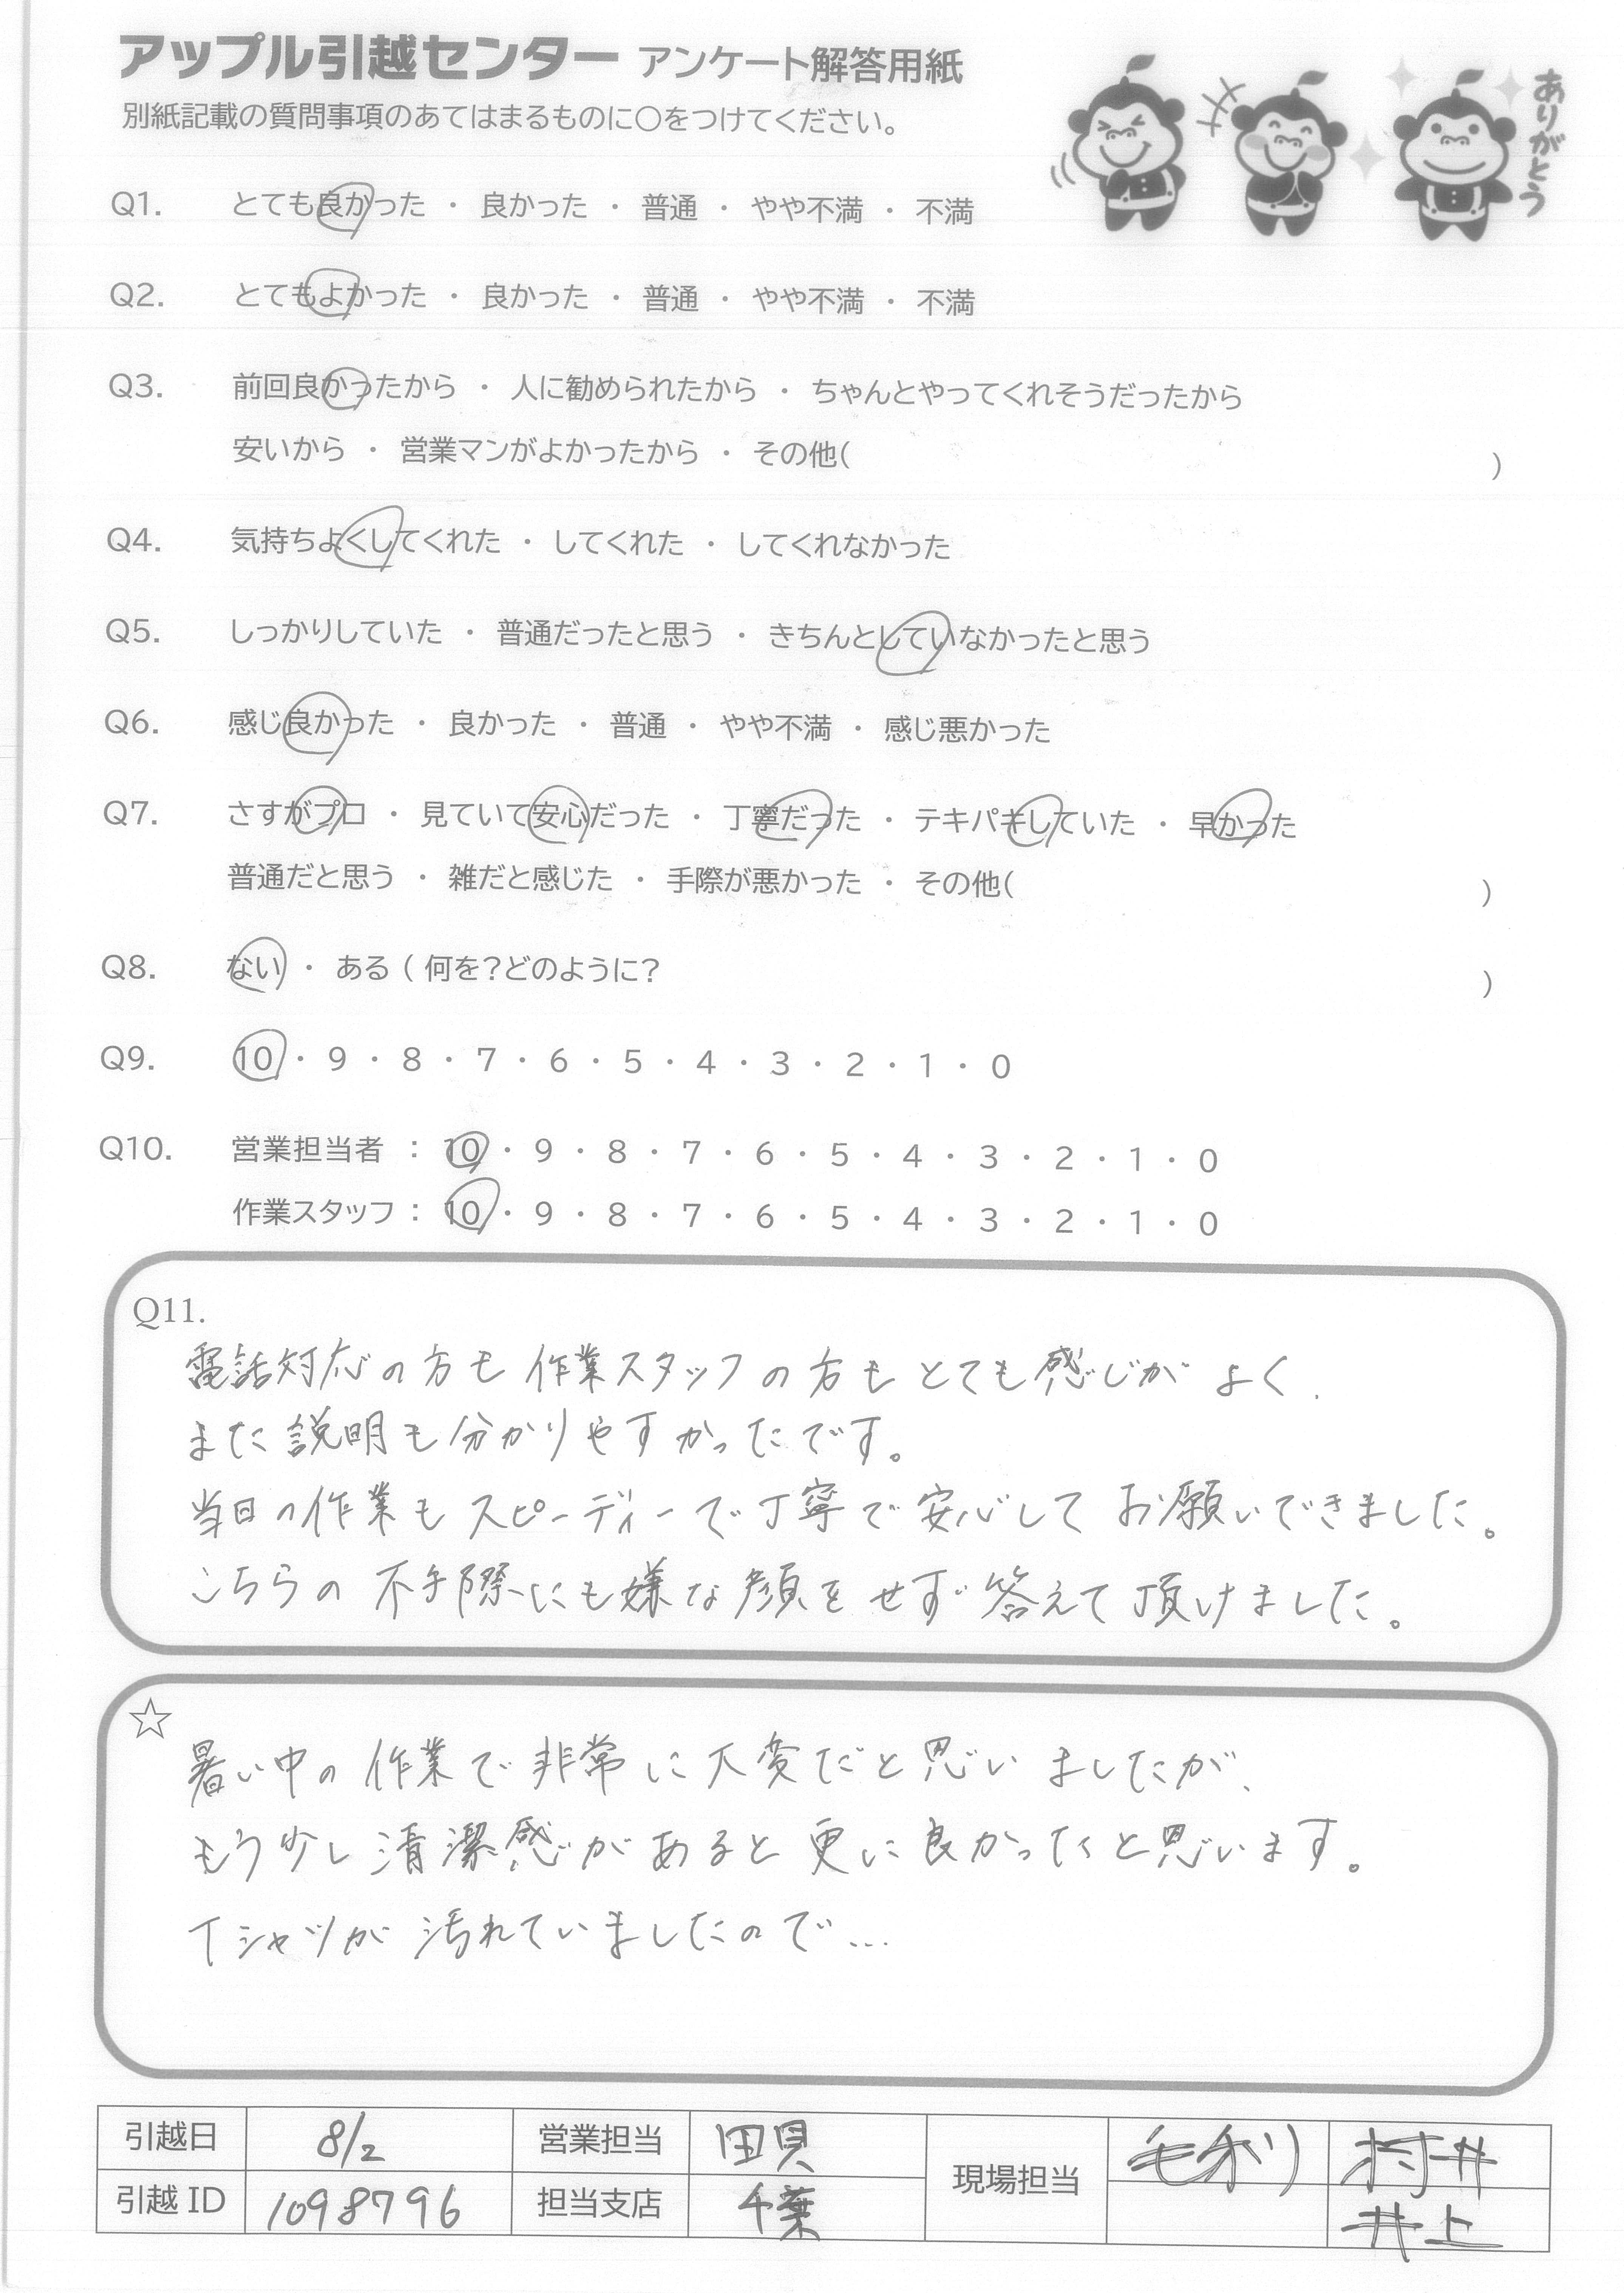 アップル引越センター アンケート解答用紙
別紙記載の質問事項のあてはまるものに○をつけてください。
ありがとう
Q1. とても良かった ・ 良かった ・ 普通 ・ やや不満 ・ 不満
Q2. とてもよかった ・ 良かった ・ 普通 ・ やや不満 ・ 不満
Q3. 前回良かったから ・ 人に勧められたから ・ ちゃんとやってくれそうだったから
安いから ・ 営業マンがよかったから ・ その他( )
Q4. 気持ちよくしてくれた ・ してくれた ・ してくれなかった
Q5. しっかりしていた ・ 普通だったと思う ・ きちんとしていなかったと思う
Q6. 感じ良かった ・ 良かった ・ 普通 ・ やや不満 ・ 感じ悪かった
Q7. さすがプロ ・ 見ていて安心だった ・ 丁寧だった ・ テキパキしていた ・ 早かった
普通だと思う ・ 雑だと感じた ・ 手際が悪かった ・ その他( )
Q8. ない ・ ある ( 何を?どのように? )
Q9. 10 ・ 9 ・ 8 ・ 7 ・ 6 ・ 5 ・ 4 ・ 3 ・ 2 ・ 1 ・ 0
Q10. 営業担当者 : 10 ・ 9 ・ 8 ・ 7 ・ 6 ・ 5 ・ 4 ・ 3 ・ 2 ・ 1 ・ 0
作業スタッフ : 10 ・ 9 ・ 8 ・ 7 ・ 6 ・ 5 ・ 4 ・ 3 ・ 2 ・ 1 ・ 0
Q11.
電話対応の方も作業スタッフの方もとても感じがよく、
また説明も分かりやすかったです。
当日の作業もスピーディーで丁寧で安心してお願いできました。
こちらの不手際にも嫌な顔をせず答えて頂けました。
☆
暑い中の作業で非常に大変だと思いましたが、
もう少し清潔感があると更に良かったと思います。
Tシャツが汚れていましたので…
引越日 8/2 営業担当 田貝 現場担当 毛利 村井
引越ID 1098796 担当支店 千葉 井上